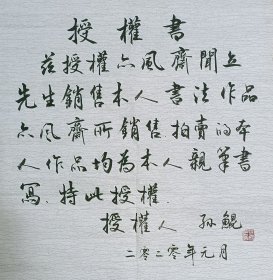 授權書
茲授權六風齋聞立
先生銷售本人書法作品
六风齋所銷售拍賣的本
人作品均為本人親筆書
寫.特此授權.
授權人 孙鯤
二零二零年元月